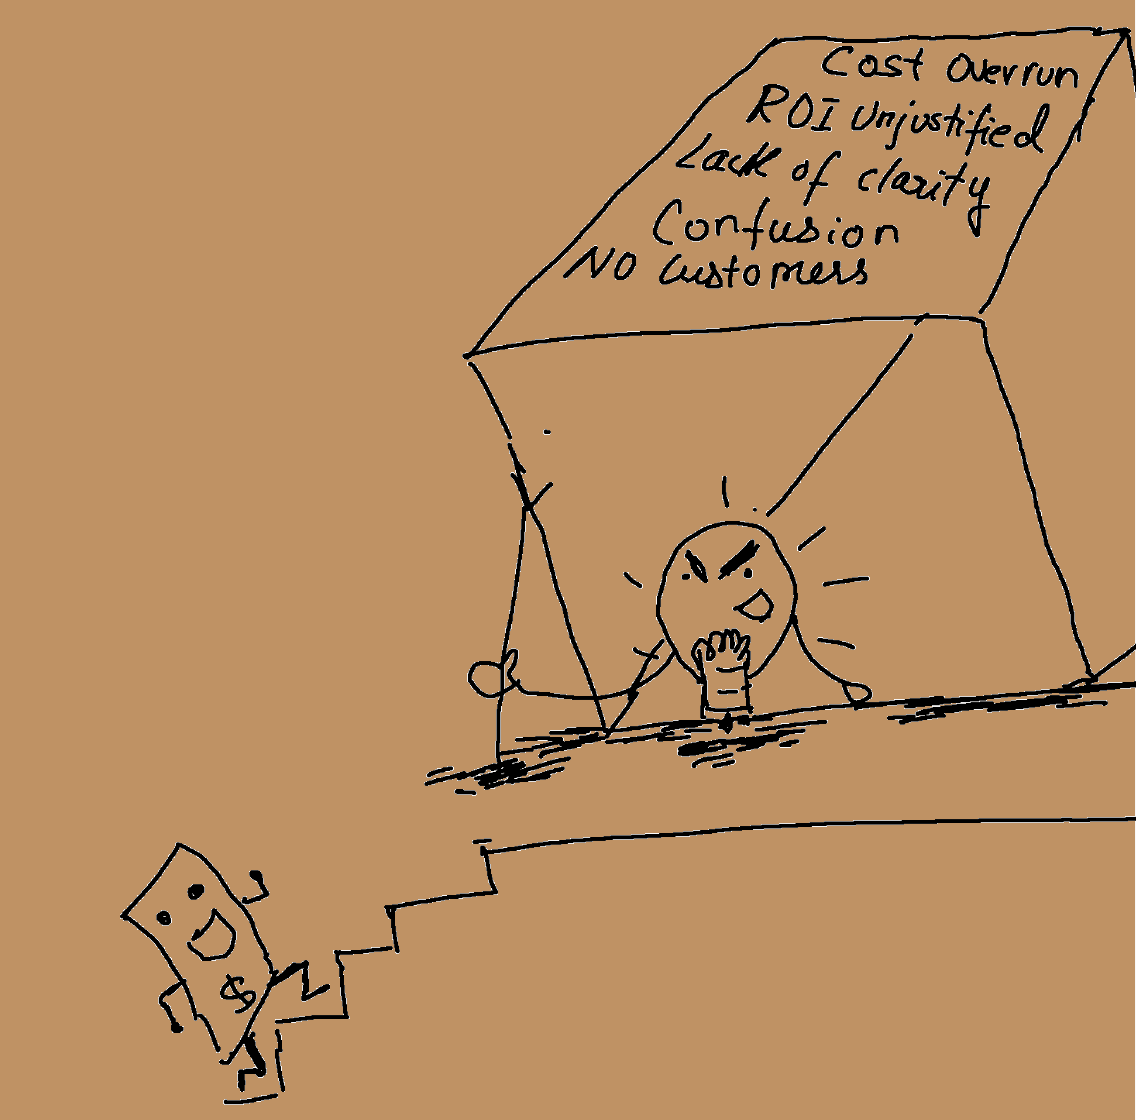 Cost Overrun
ROI Unjustified
Lack of clarity
Confusion
NO Customers
$